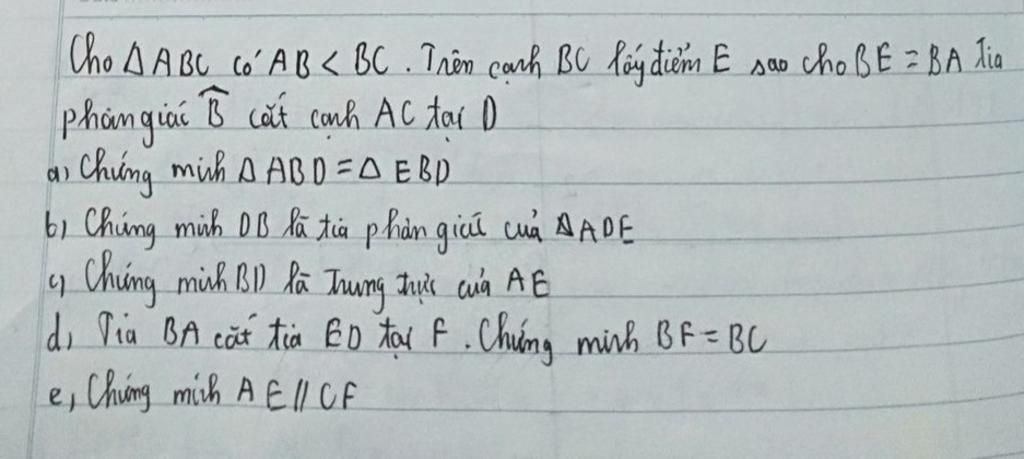 Cho ΔABC có AB < BC. Trên cạnh BC lấy điểm E sao cho BE = BA Tia
phân giác B̂ cắt cạnh AC tại D
a) Chứng minh Δ ABD = Δ EBD
b) Chứng minh DB là tia phân giác của ΔADE
c) Chứng minh BD là Trung trực của AE
d, Tia BA cắt tia ED tại F. Chứng minh BF = BC
e, Chứng minh AE // CF